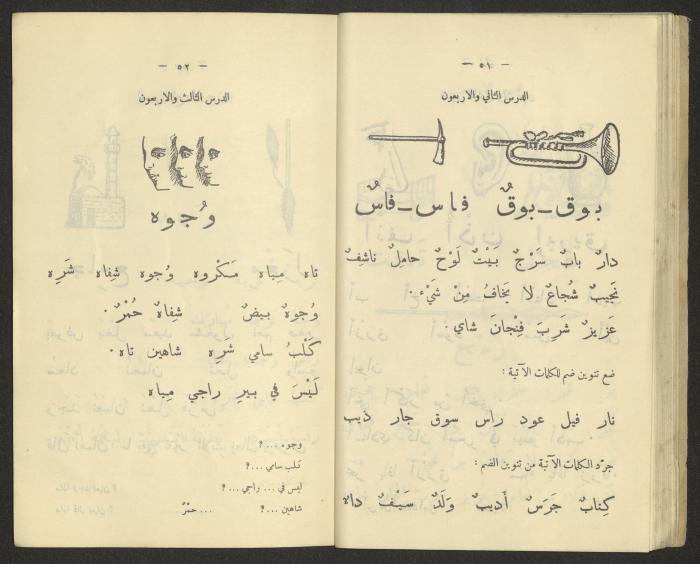 — ٥١ —
الدرس الثاني والاربعون
بوق - بوقٌ فاس - فاسٌ
دارٌ بابٌ سَرْجٌ بَيْتٌ لَوْحٌ حامِلٌ ناشِفٌ
نَجيبٌ شُجاعٌ لا يَخافُ مِنْ شَيْءٍ.
عَزيزٌ شَرِبَ فِنْجانَ شاي.
ضع تنوين ضم للكلمات الآتية :
نار فيل عود راس سوق جار ذيب
جرّد الكلمات الآتية من تنوين الضم :
كِتابٌ جَرَسٌ أَديبٌ وَلَدٌ سَيْفٌ داءٌ
— ٥٢ —
الدرس الثالث والاربعون
وُجوه
تاه مِياه مَكْروه وُجوه شِفاه شَرِه
وُجوهٌ بيضٌ شِفاهٌ حُمْرٌ.
كَلْبُ سامي شَرِه شاهين تاه.
لَيْسَ في بيرِ راجي مِياه
وجوه ...؟
كلب سامي ...؟
ليس في ... راجي ...؟
شاهين ...؟ ... حمْرٌ